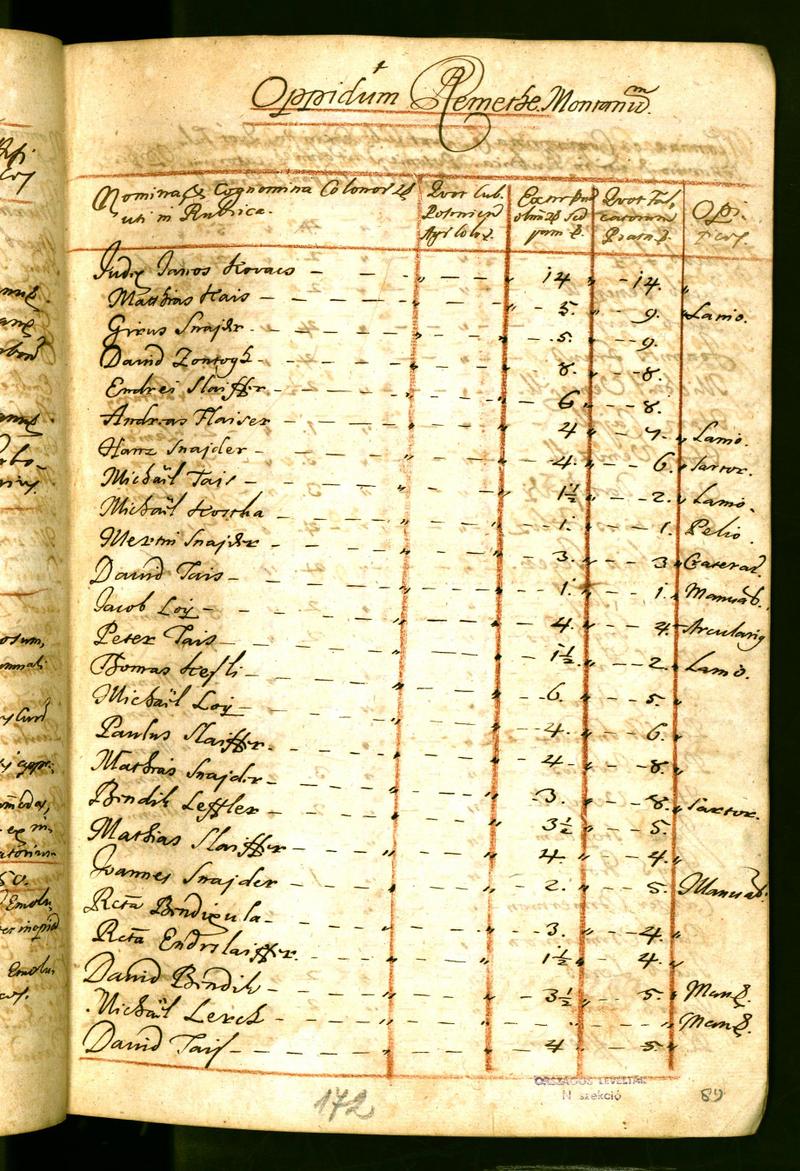 Oppidum Remethe Montanum
Nomina & Cognomina Colonor
uti in Rubrica.
Quot Cub.
Extirpat
olim sed
Quot Fal
catorum
Prator
Opi
fices
Judex Janos Kovacs - - - - " - - - 14 " - 14. "
Matthias Hais - - - - " - - - 5. " - 9. " Lanio.
Girus Snajdr - - - - " - - - 5. " - 9.
David Zontogh - - - - " - - - 8. " - 8.
Endrei Slaiffer - - - - " - - - 6 " - 8.
Andreas Flaiser - - - - " - - - 4 " - 7. " Lanio.
Hanz Snajder - - - - " - - - 4. " - 6. " Sartor.
Michaël Tais - - - - " - - - 1½ " - - 2. " Lanio.
Michaël Kostha - - - - " - - - 1. " - - 1. Pelio.
Mertin Snajdr - - - - " - - - 3. " - - 3
David Tais - - - - " - - - 1. " - - 1. Manuab.
Jacob Loÿ - - - - " - - - 4. " - - 4. Arcularig
Peter Tais - - - - " - - - 1½ " - - 2. " Lanio.
Thomas Kesli - - - - " - - - 6. " - - 5. "
Michaël Loÿ - - - - " - - - 4. " - - 6. "
Paulus Slaiffer - - - - " - - - 4 " - - 8. "
Mathias Snajder - - - - " - - - 3. " - - 8. " Sartor.
Bendik Leffler - - - - " - - - 3½ " - - 5.
Mathias Slaiffer - - - - " - - - 4. " - - 4. "
Joannes Snajder - - - - " - - - 2. " - - 5. Manuab.
Rcta Bendixula - - - - " - - - 3. " - - 4. "
Rcta Endrslaiffer. - - - - " - - - 1½ " - - 4. "
David Bendik - - - - " - - - 3½ " - - 5. " Man
Michaël Lerch - - - - " - - - " - - " Man
David Tais - - - - " - - - 4 " - - 5. "
ORSZÁGOS LEVÉLTÁR
N szekció
172
89